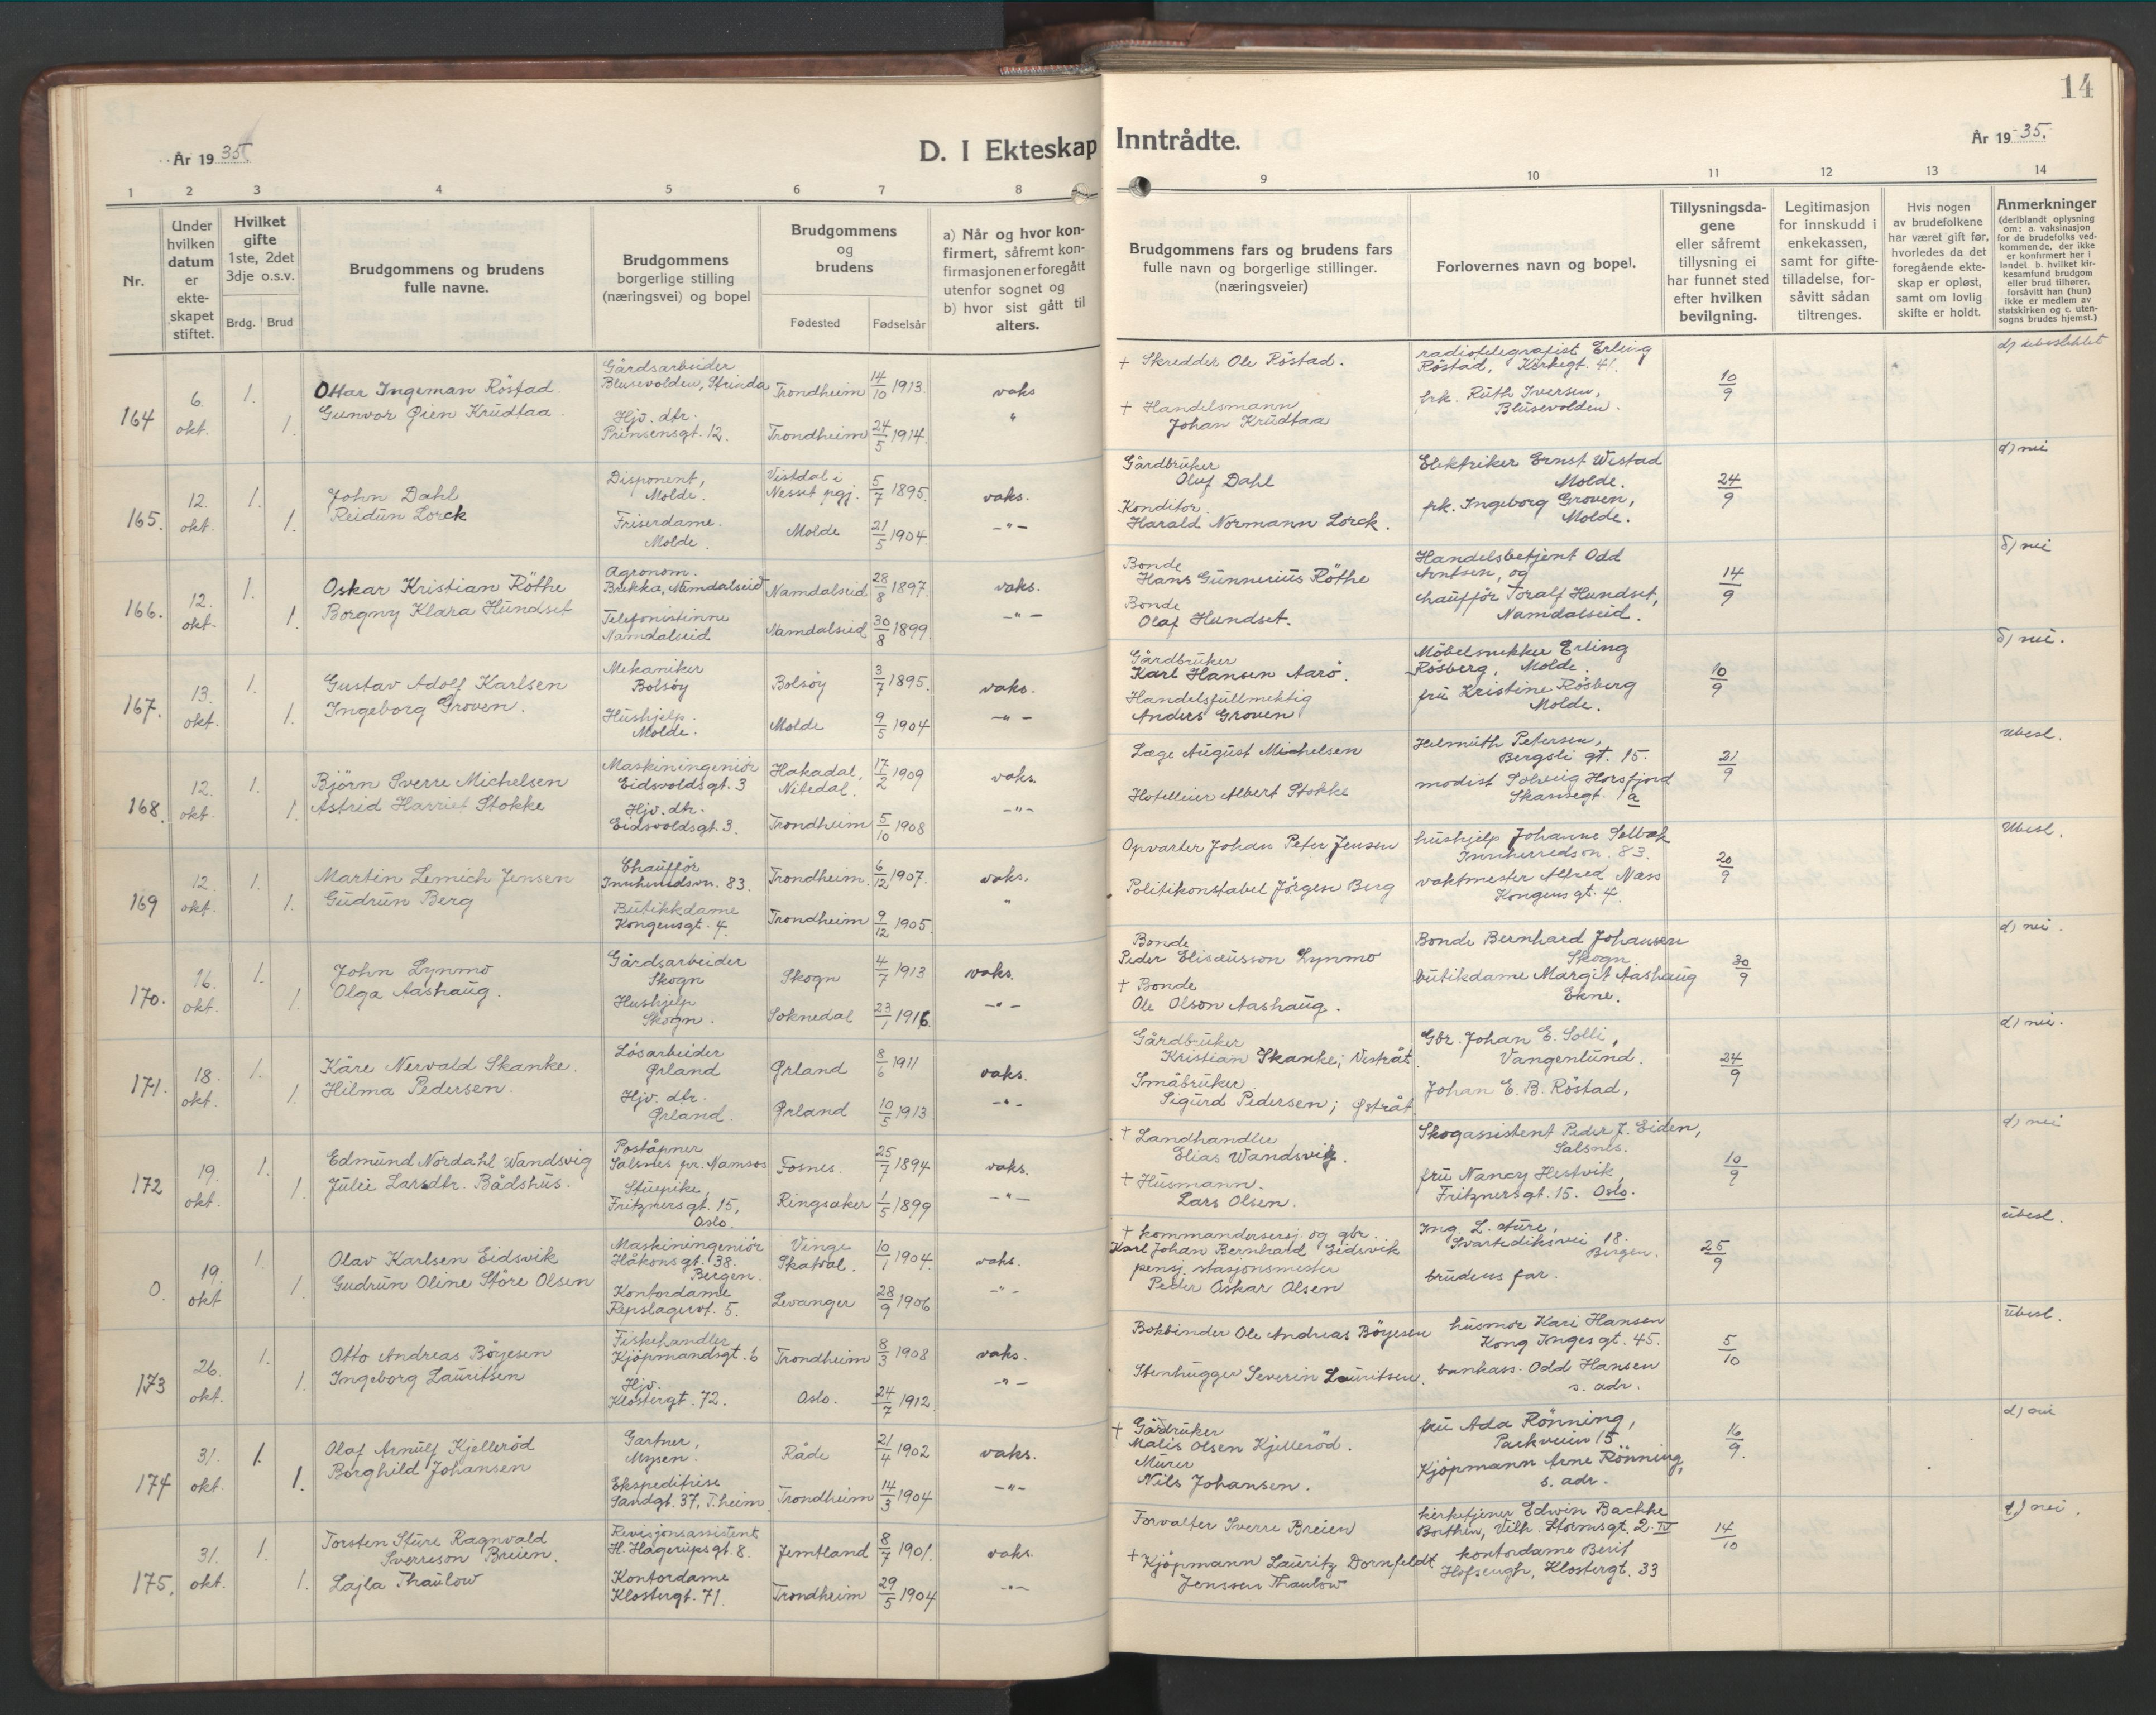 14
År 1935.
D. I Ekteskap Inntrådte.
År 1935.
1 2 3 4 5 6 7 8 9 10 11 12 13 14
Nr.
Under hvilken datum er ekteskapet stiftet.
Hvilket gifte 1ste, 2det 3dje o.s.v.
Brdg. Brud
Brudgommens og brudens fulle navne.
Brudgommens borgerlige stilling (næringsvei) og bopel
Brudgommens og brudens
Fødested Fødselsår
a) Når og hvor konfirmert, såfremt konfirmasjonen er foregått utenfor sognet og b) hvor sist gått til alters.
Brudgommens fars og brudens fars fulle navn og borgerlige stillinger. (næringsveier)
Forlovernes navn og bopel.
Tillysningsdagene eller såfremt tillysning ei har funnet sted efter hvilken bevilgning.
Legitimasjon for innskudd i enkekassen, samt for giftetilladelse, forsåvitt sådan tiltrenges.
Hvis nogen av brudefolkene har været gift før, hvorledes da det foregående ekteskap er opløst, samt om lovlig skifte er holdt.
Anmerkninger (deriblandt oplysning om: a. vaksinasjon for de brudefolks vedkommende, der ikke er konfirmert her i landet. b. hvilket kirkesamfund brudgom eller brud tilhører, forsåvitt han (hun) ikke er medlem av statskirken og c. utensogns brudes hjemst.)
164 6. okt. 1. 1.
Ottar Ingeman Röstad
Gunvor Øien Krüdtaa.
Gårdsarbeider
Blusevolden, Strinda
Hjv. dtr.
Prinsensgt. 12.
Trondheim 14/10 1913.
Trondheim 24/5 1914.
vaks
"
+ Skredder Ole Röstad.
+ Handelsmann
Johan Krüdtaa
radiotelegrafist Erling
Röstad, Kirkegt. 41.
frk. Ruth Iversen,
Blüsevolden.
10/9
d) ubesluttet
165. 12. okt. 1. 1.
John Dahl
Reidun Lorck
Disponent,
Molde.
Friserdame.
Molde.
Vistdal i
Nesset pgj. 5/7 1895.
Molde 21/5 1904
vaks.
-"-
Gårdbrüker
Oluf Dahl
Konditor
Harald Normann Lorck.
Elektriker Ernst Westad
Molde.
frk. Ingeborg Groven,
Molde.
24/9
d) nei
166. 12. okt. 1. 1.
Oskar Kristian Röthe
Borgny Klara Hündset
Agronom.
Brekka, Namdalseid
Telefonistinne
Namdalseid
Namdalseid 28/8 1897.
Namdalseid 30/8 1899.
vaks.
-"-
Bonde
Hans Günnerius Röthe
Bonde
Olaf Hundset.
Handelsbetjent Odd
Arntsen, og
chauffør Toralf Hundset,
Namdalseid.
14/9
d) nei
167. 13. okt. 1. 1.
Gustav Adolf Karlsen
Ingeborg Groven.
Mekaniker
Bolsöy
Hüshjelp.
Molde.
Bolsöy 3/7 1895.
Molde 9/5 1904
vaks.
-"-
Gårdbrüker
Karl Hansen Aarö.
Handelsfullmektig
Anders Groven
Möbelsnekker Erling
Rösberg, Molde.
frü Kristine Rösberg
Molde.
10/9
d) nei.
168. 12. okt. 1. 1.
Björn Sverre Michelsen
Astrid Harriet Stokke
Maskiningeniör
Eidsvoldsgt. 3
Hjv. dtr.
Eidsvoldsgt. 3.
Hakadal,
Nitedal. 17/2 1909
Trondheim 5/10 1908
vaks.
-"-
Læge August Michelsen
Hotelleier Albert Stokke
Helmüth Petersen,
Bergsli gt. 15.
modist Solveig Horsfjord
Skansegt. 1a
21/9
ubesl.
169 12. okt. 1. 1.
Martin Lemich Jensen
Gudrün Berg
Chauffør
Innherredsvn. 83.
Bütikkdame
Kongensgt. 4.
Trondheim. 6/12 1907.
Trondheim 9/12 1905.
vaks.
"
Opvarter Johan Peter Jensen
Politikonstabel Jörgen Berg
hushjelp Johanne Selbæk
Innherredsvn. 83.
vaktmester Alfred Næss
Kongensgt. 4.
20/9
Ubesl.
170. 16. okt. 1. 1.
John Lynmo
Olga Aashaug.
Gårdsarbeider
Skogn
Hushjelp
Skogn.
Skogn 4/7 1913
Soknedal 23/1 1916.
vaks.
-"-
Bonde
Peder Elisæusson Lynmo
+ Bonde
Ole Olson Aashaug.
Bonde Bernhard Johansen
Skogn.
butikdame Margit Aashaug
Ekne.
30/9
d) nei.
171. 18. okt. 1. 1.
Kåre Nervald Skanke.
Hilma Pedersen.
Lösarbeider
Ørland
Hjv. dtr.
Ørland.
Ørland 8/6 1911
Ørland 10/5 1913
vaks.
-"-
Gårdbrüker
Kristian Skanke; Vestråt.
Småbrüker
Sigurd Pedersen; Østråt
Gbr. Johan E. Solli,
Vangenlund.
Johan E. B. Röstad,
24/9
d) nei.
172 19. okt. 1. 1.
Edmund Nordahl Wandsvig
Julie Larsdtr. Bådshus.
Poståpner
Salsnes pr. Namsos
Stuepike,
Fritznersgt. 15,
Oslo.
Fosnes. 25/7 1894
Ringsaker 1/5 1899
vaks.
-"-
+ Landhandler
Elias Wandsvig.
+ Husmann.
Lars Olsen.
Skogassistent Peder J. Eiden,
Salsnes.
frü Nancy Hestvik,
Fritznersgt. 15. Oslo.
10/9
d) nei
0. 19. okt 1. 1.
Olav Karlsen Eidsvik
Gudrün Oline Störe Olsen
Maskiningeniör
Håkonsgt. 38.
Bergen.
Kontordame
Repslagervt. 5.
Vinge
Skatval. 10/1 1904.
Levanger 28/9 1906
vaks.
-"-
+ kommandersersj. og gbr.
Karl Johan Bernhard Eidsvik
pensj. stasjonsmester
Peder Oskar Olsen
Ing. L. Sture,
Svartediksvei 18.
Bergen.
brudens far.
25/9
übesl.
173 26. okt. 1. 1.
Otto Andreas Böyesen
Ingeborg Lauritsen
Fiskehandler
Kjöpmandsgt. 6
Hjv.
Klostergt. 72.
Trondheim 8/3 1908
Oslo. 24/7 1912
vaks.
-"-
Bokbinder Ole Andreas Böyesen
Stenhugger Severin Lauritsen.
husmor Kari Hansen
Kong Inges gt. 45.
bankass. Odd Hansen
s. adr.
5/10
Ubesl.
174 31. okt. 1. 1.
Olaf Arnülf Kjelleröd
Borghild Johansen
Gartner,
Mysen.
Ekspeditrise
Sandgt. 37, T.heim
Råde 21/4 1902
Trondheim 14/3 1904
vaks.
-"-
+ Gårdrüker
Matis Olsen Kjelleröd.
Mürer
Nils Johansen.
frü Ada Rönning,
Parkveien 15
Kjöpmann Arne Rönning,
s. adr.
16/9.
d) nei
175. 31. okt. 1. 1.
Torsten Sture Ragnvald
Sverreson Breien.
Lajla Thaulow
Revisjonsassistent
H. Hagerupsgt. 8.
Kontordame
Klostergt. 71.
Jemtland 8/7 1901.
Trondheim 29/5 1904
vaks.
-"-
Forvalter Sverre Breien
+ Kjöpmann Lauritz Dornfeldt
Jenssen Thaulow
kirketjener Edwin Bachke
Borthen, Vilh. Stormsgt. 2 IV
kontordame Berit
Klostergt. 33
14/10
d) nei.